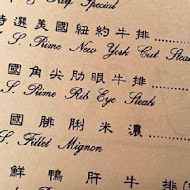 Special
特選美國紐約牛排
S. Prime New York Cut Steak
國角尖肋眼牛排
S. Prime Rib Eye Steak
國腓脷米濃
S. Fillet Mignon
鮮鴨肝牛排